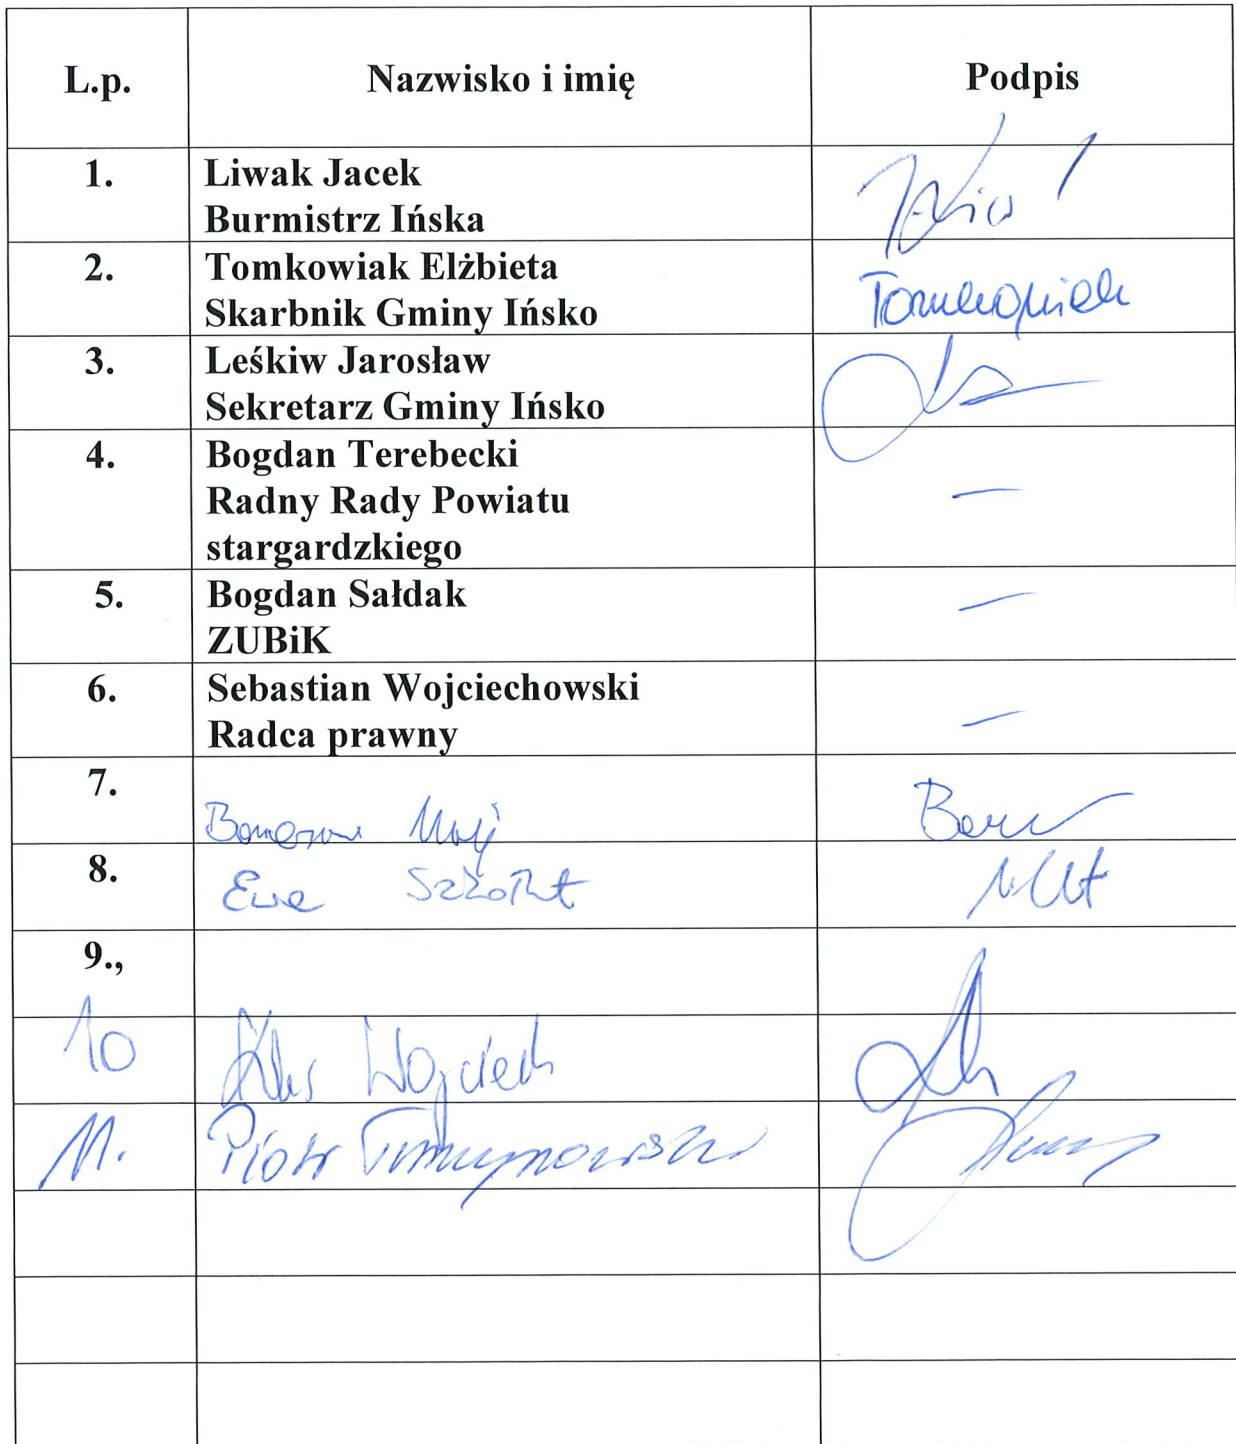 L.p. Nazwisko i imię Podpis
1. Liwak Jacek
Burmistrz Ińska
2. Tomkowiak Elżbieta Tomkowiak
Skarbnik Gminy Ińsko
3. Leśkiw Jarosław
Sekretarz Gminy Ińsko
4. Bogdan Terebecki
Radny Rady Powiatu –
stargardzkiego
5. Bogdan Sałdak –
ZUBiK
6. Sebastian Wojciechowski
Radca prawny –
7.
8. Ewa
9.,
10 Wojciech
11. Piotr